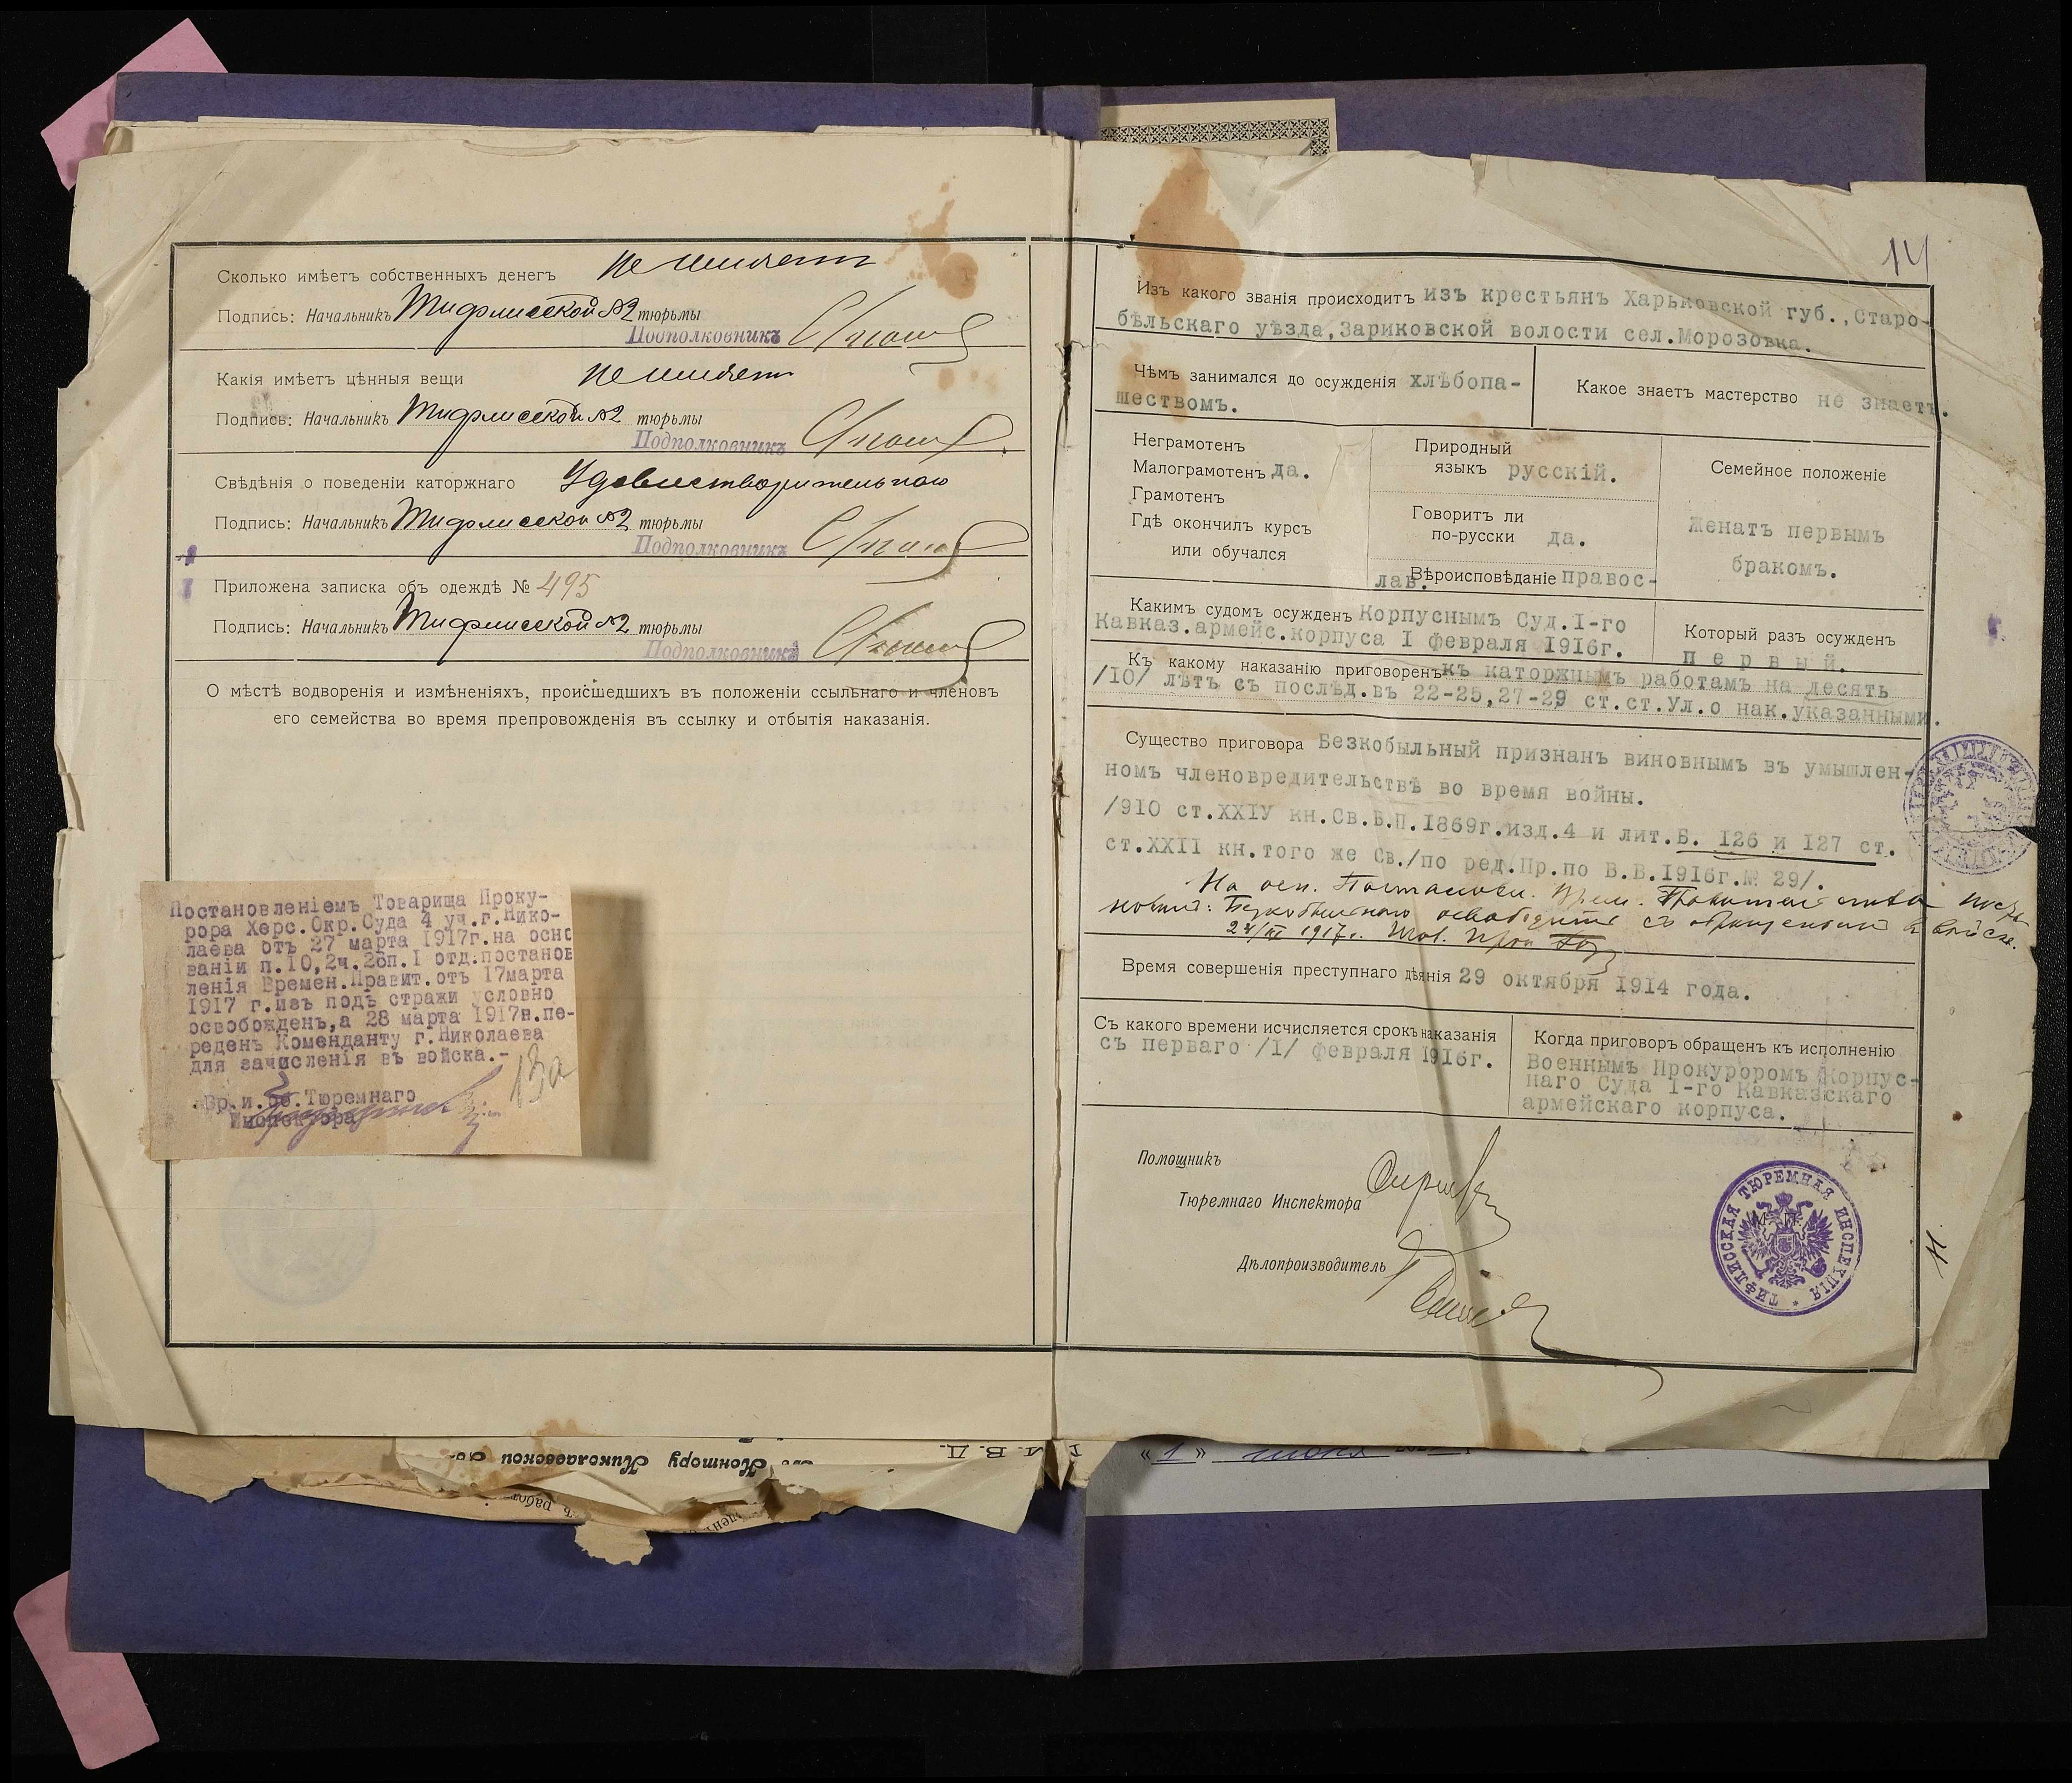 Сколько имѣетъ собственныхъ денегъ не имѣетъ
Подпись: Начальникъ Тифлисской №2 тюрьмы
Подполковникъ
Какія имѣетъ цѣнныя вещи не имѣетъ
Подпись: Начальникъ Тифлисской №2 тюрьмы
Подполковникъ
Свѣдѣнія о поведеніи каторжнаго Удовлетворительнаго
Подпись: Начальникъ Тифлисской №2 тюрьмы
Подполковникъ
Приложена записка объ одеждѣ № 495
Подпись: Начальникъ Тифлисской №2 тюрьмы
Подполковникъ
О мѣстѣ водворенія и измѣненіяхъ, происшедшихъ въ положеніи ссыльнаго и членовъ
его семейства во время препровожденія въ ссылку и отбытія наказанія.
Постановленіемъ Товарища Проку-
рора Херс.Окр.Суда 4 уч.г.Нико-
лаева отъ 27 марта 1917г.на осно
ваніи п.10,2ч.2бп.I отд.постанов
ленія Времен.Правит.отъ 17марта
1917 г.изъ подъ стражи условно
освобожденъ,а 28 марта 1917г.пе-
реденъ Коменданту г.Николаева
для зачисленія въ войска.-
Вр.и.об.Тюремнаго
Инспектора
13а
14
Изъ какого званія происходитъ изъ крестьянъ Харьковской губ.,Старо-
бѣльскаго уѣзда,Зариковской волости сел.Морозовка.
Чѣмъ занимался до осужденія хлѣбопа-
шествомъ.
Какое знаетъ мастерство не знаетъ.
Неграмотенъ
Малограмотенъ да.
Грамотенъ
Гдѣ окончилъ курсъ
или обучался
Природный
языкъ русскій.
Говоритъ ли
по-русски да.
Вѣроисповѣданіе правос-
лав.
Семейное положеніе
Женатъ первымъ
бракомъ.
Какимъ судомъ осужденъ Корпуснымъ Суд.I-го
Кавказ.армейс.корпуса I февраля 1916г.
Который разъ осужденъ
первый.
Къ какому наказанію приговоренъ къ каторжнымъ работамъ на десять
/10/ лѣтъ съ послѣд.въ 22-25,27-29 ст.ст.Ул.о нак.указанными.
Существо приговора Безкобыльный признанъ виновнымъ въ умышлен-
номъ членовредительствѣ во время войны.
/910 ст.XXIУ кн.Св.В.П.1869г.изд.4 и лит.Б. 126 и 127 ст.
ст.XXII кн.того же Св./по ред.Пр.по В.В.1916г.№ 29/.
На осн. Постановл. Врем. Правительства
Безкобыльнаго освободить съ обращеніемъ въ войска.
1917г. Тов. Прок
Время совершенія преступнаго дѣянія 29 октября 1914 года.
Съ какого времени исчисляется срокъ наказанія
съ перваго /I/ февраля 1916г.
Когда приговоръ обращенъ къ исполненію
Военнымъ Прокуроромъ Корпус-
наго Суда I-го Кавказскаго
армейскаго корпуса.
Помощникъ
Тюремнаго Инспектора
Дѣлопроизводитель
ТИФЛИССКАЯ ТЮРЕМНАЯ ИНСПЕКЦІЯ
М. П.
Контору Николаевской
«1» июня